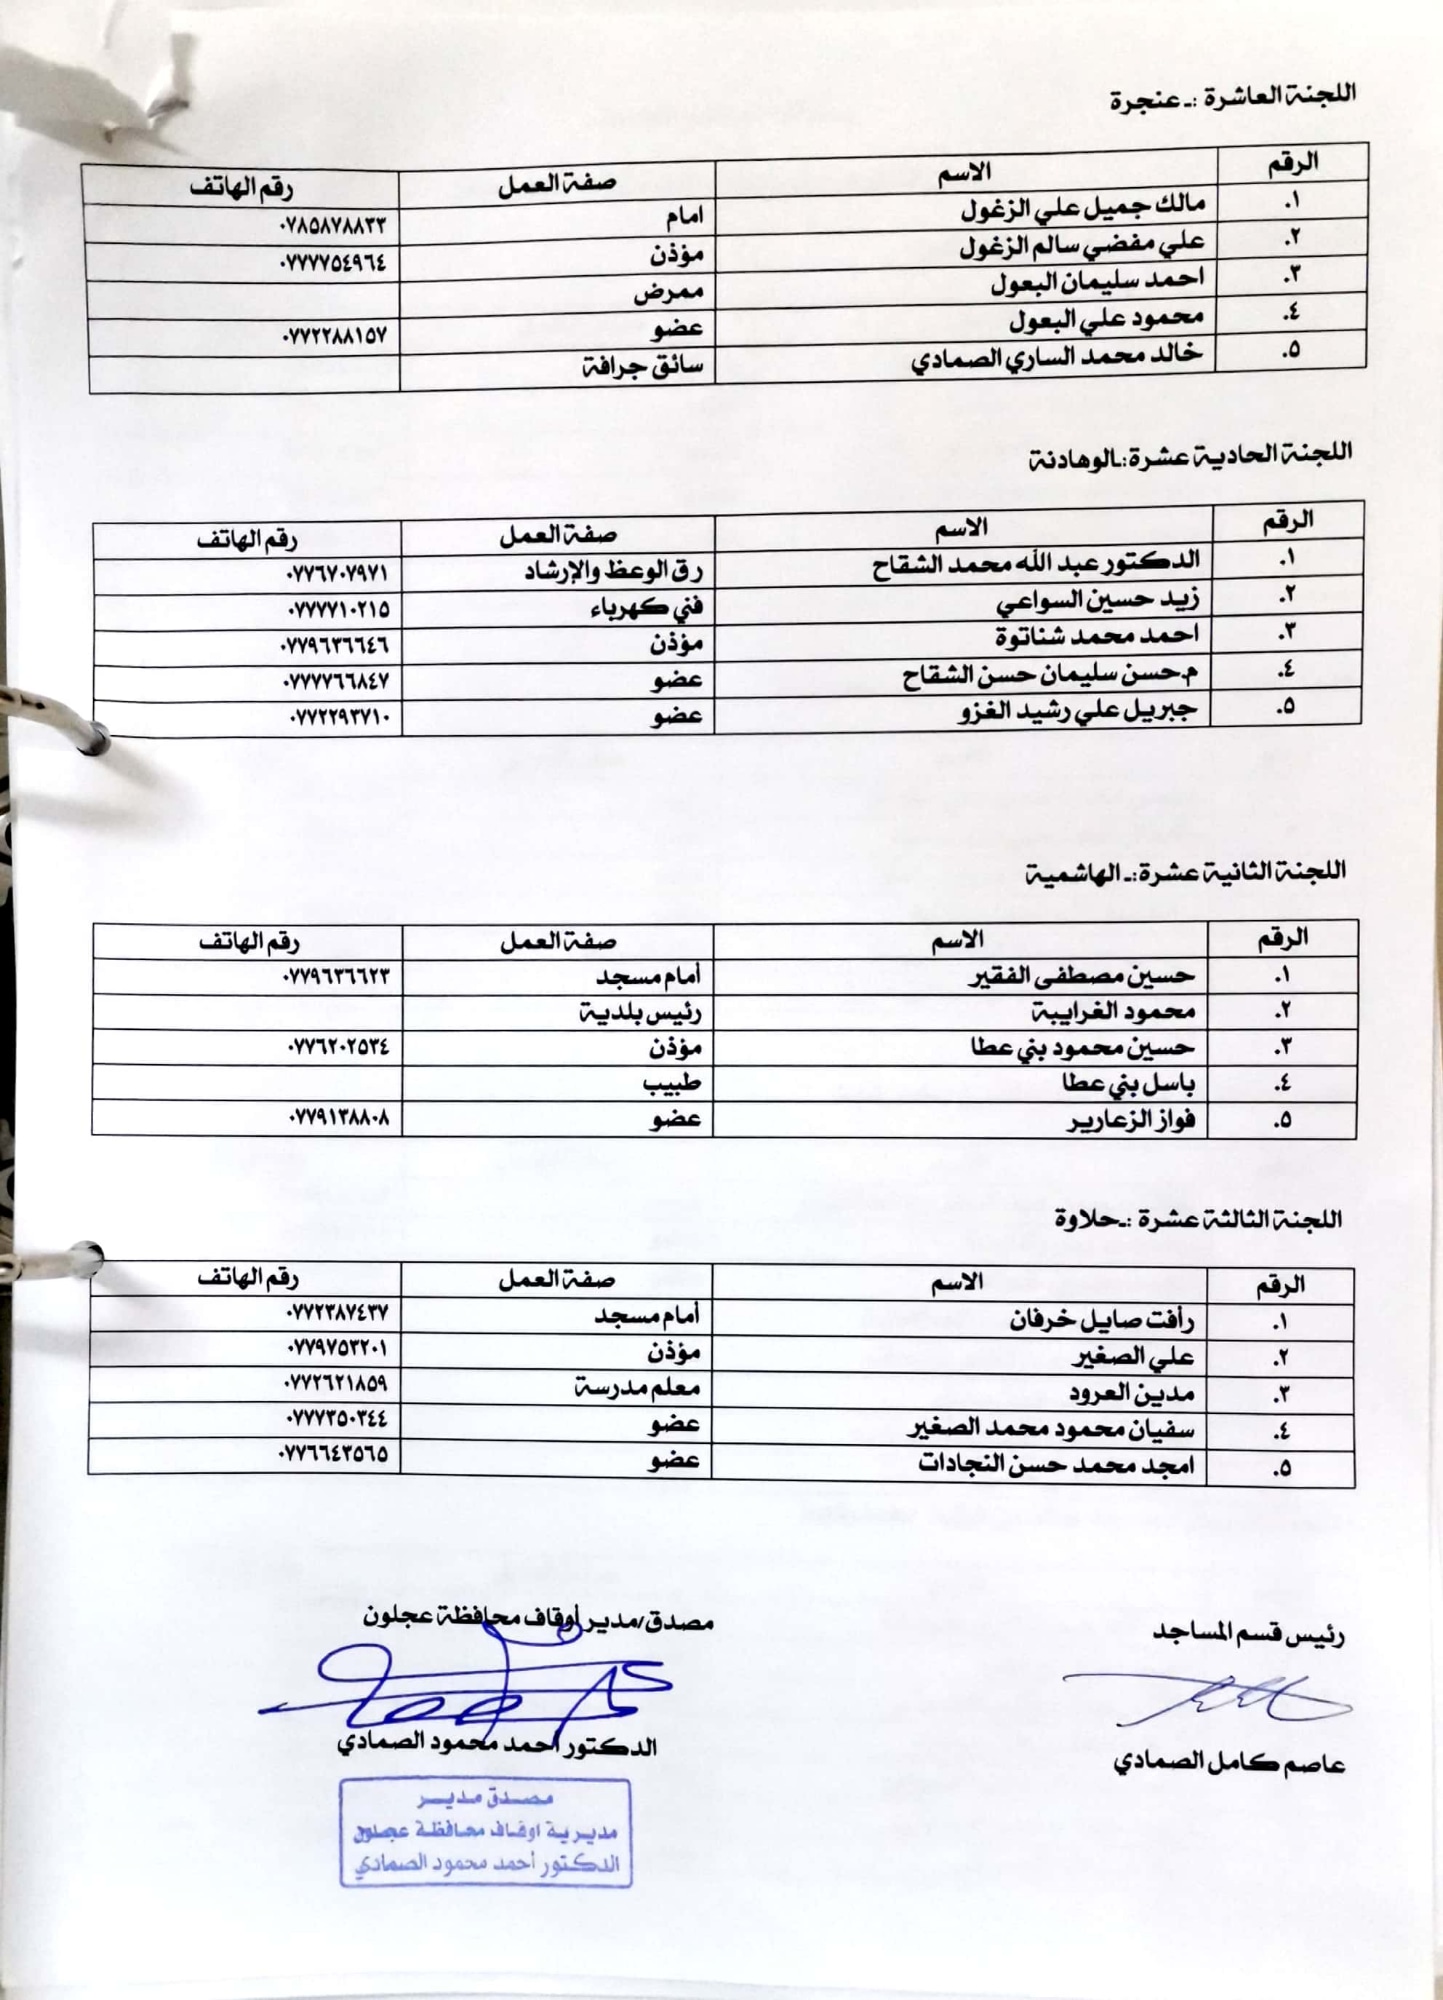 اللجنة العاشرة :- عنجرة
الرقم الاسم صفة العمل رقم الهاتف
١. مالك جميل علي الزغول امام ٠٧٨٥٨٧٨٨٣٣
٢. علي مفضي سالم الزغول مؤذن ٠٧٧٧٧٥٤٩٦٤
٣. احمد سليمان البعول ممرض
٤. محمود علي البعول عضو ٠٧٧٢٢٨٨١٥٧
٥. خالد محمد الساري الصمادي سائق جرافة
اللجنة الحادية عشرة:ـالوهادنة
الرقم الاسم صفة العمل رقم الهاتف
١. الدكتور عبد الله محمد الشقاح رق الوعظ والإرشاد ٠٧٧٦٧٠٧٩٧١
٢. زيد حسين السواعي فني كهرباء ٠٧٧٧٧١٠٢١٥
٣. احمد محمد شناتوة مؤذن ٠٧٧٩٦٣٦٦٤٦
٤. م.حسن سليمان حسن الشقاح عضو ٠٧٧٧٧٦٦٨٤٧
٥. جبريل علي رشيد الغزو عضو ٠٧٧٢٢٩٣٧١٠
اللجنة الثانية عشرة:ـ الهاشمية
الرقم الاسم صفة العمل رقم الهاتف
١. حسين مصطفى الفقير أمام مسجد ٠٧٧٩٦٣٦٦٢٣
٢. محمود الغرايبة رئيس بلدية
٣. حسين محمود بني عطا مؤذن ٠٧٧٦٢٠٢٥٣٤
٤. باسل بني عطا طبيب
٥. فواز الزعارير عضو ٠٧٧٩١٣٨٨٠٨
اللجنة الثالثة عشرة :ـحلاوة
الرقم الاسم صفة العمل رقم الهاتف
١. رأفت صايل خرفان أمام مسجد ٠٧٧٢٣٨٧٤٣٧
٢. علي الصغير مؤذن ٠٧٧٩٧٥٣٢٠١
٣. مدين العرود معلم مدرسة ٠٧٧٢٦٢١٨٥٩
٤. سفيان محمود محمد الصغير عضو ٠٧٧٧٣٥٠٣٤٤
٥. امجد محمد حسن النجادات عضو ٠٧٧٦٦٤٣٥٦٥
رئيس قسم المساجد مصدق/مدير أوقاف محافظة عجلون
عاصم كامل الصمادي الدكتور أحمد محمود الصمادي
مصدق مدير
مديرية اوقاف محافظة عجلون
الدكتور أحمد محمود الصمادي